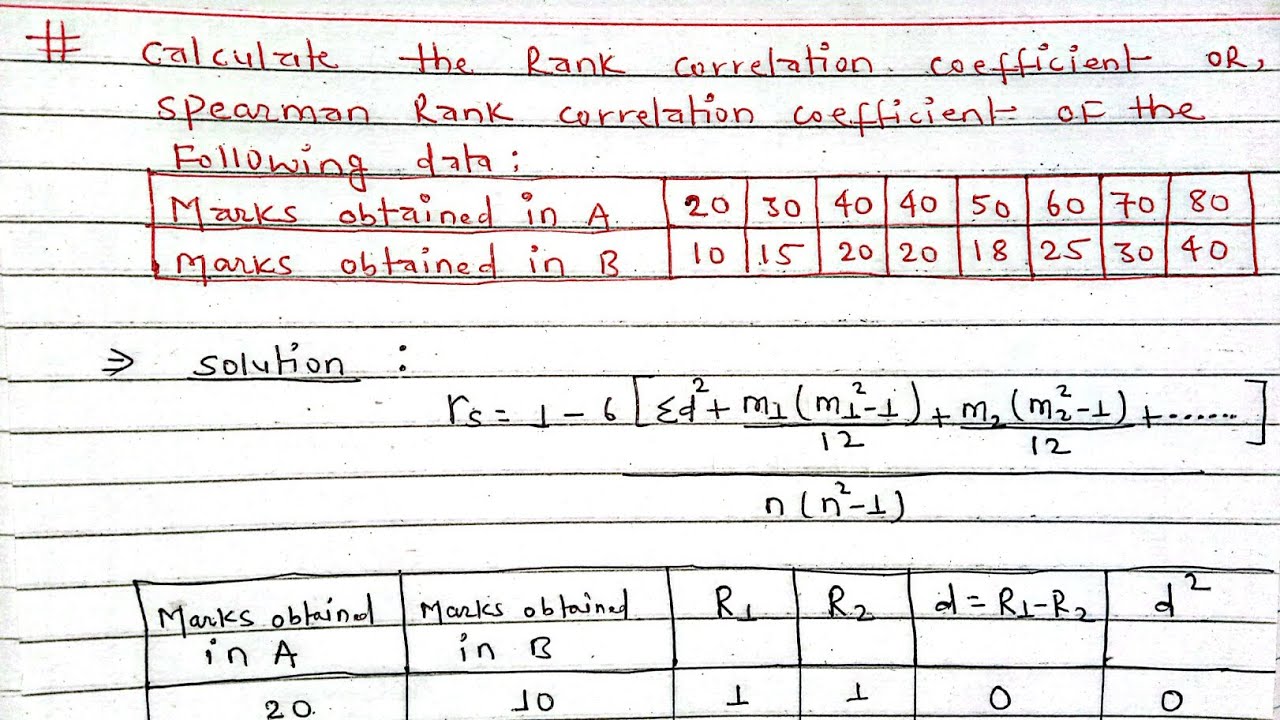 # Calculate the Rank correlation coefficient OR,
Spearman Rank correlation coefficient of the
Following data:
Marks obtained in A 20 30 40 40 50 60 70 80
Marks obtained in B 10 15 20 20 18 25 30 40
⇒ Solution :
rs = 1 - 6 [Σd² + m₁(m₁²-1)/12 + m₂(m₂²-1)/12 + .......]
n(n²-1)
Marks obtained in A Marks obtained in B R₁ R₂ d = R₁-R₂ d²
20 10 1 1 0 0